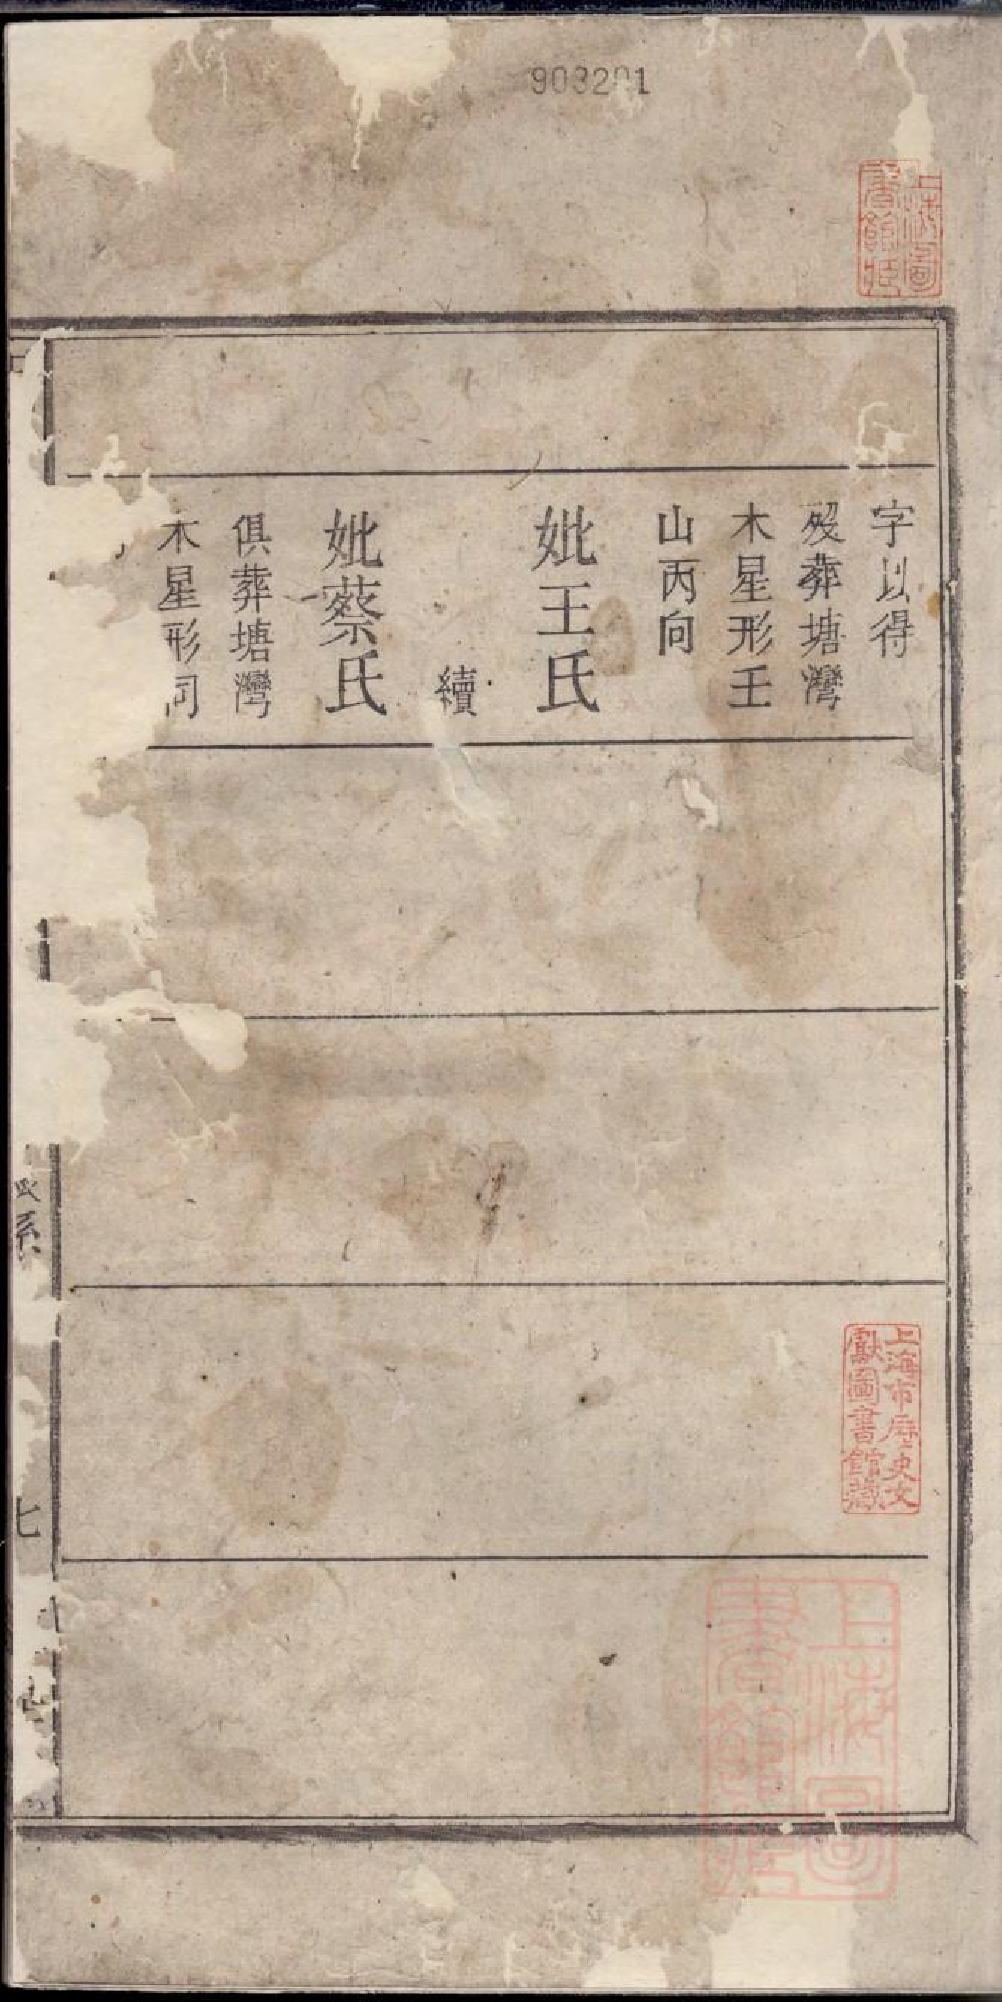 903201
上海圖
書館藏
字以得
歿葬塘灣
木星形壬
山丙向
妣王氏
續
妣蔡氏
俱葬塘灣
木星形同
系
七
上海市歷史文
獻圖書館藏
上海圖
書館藏